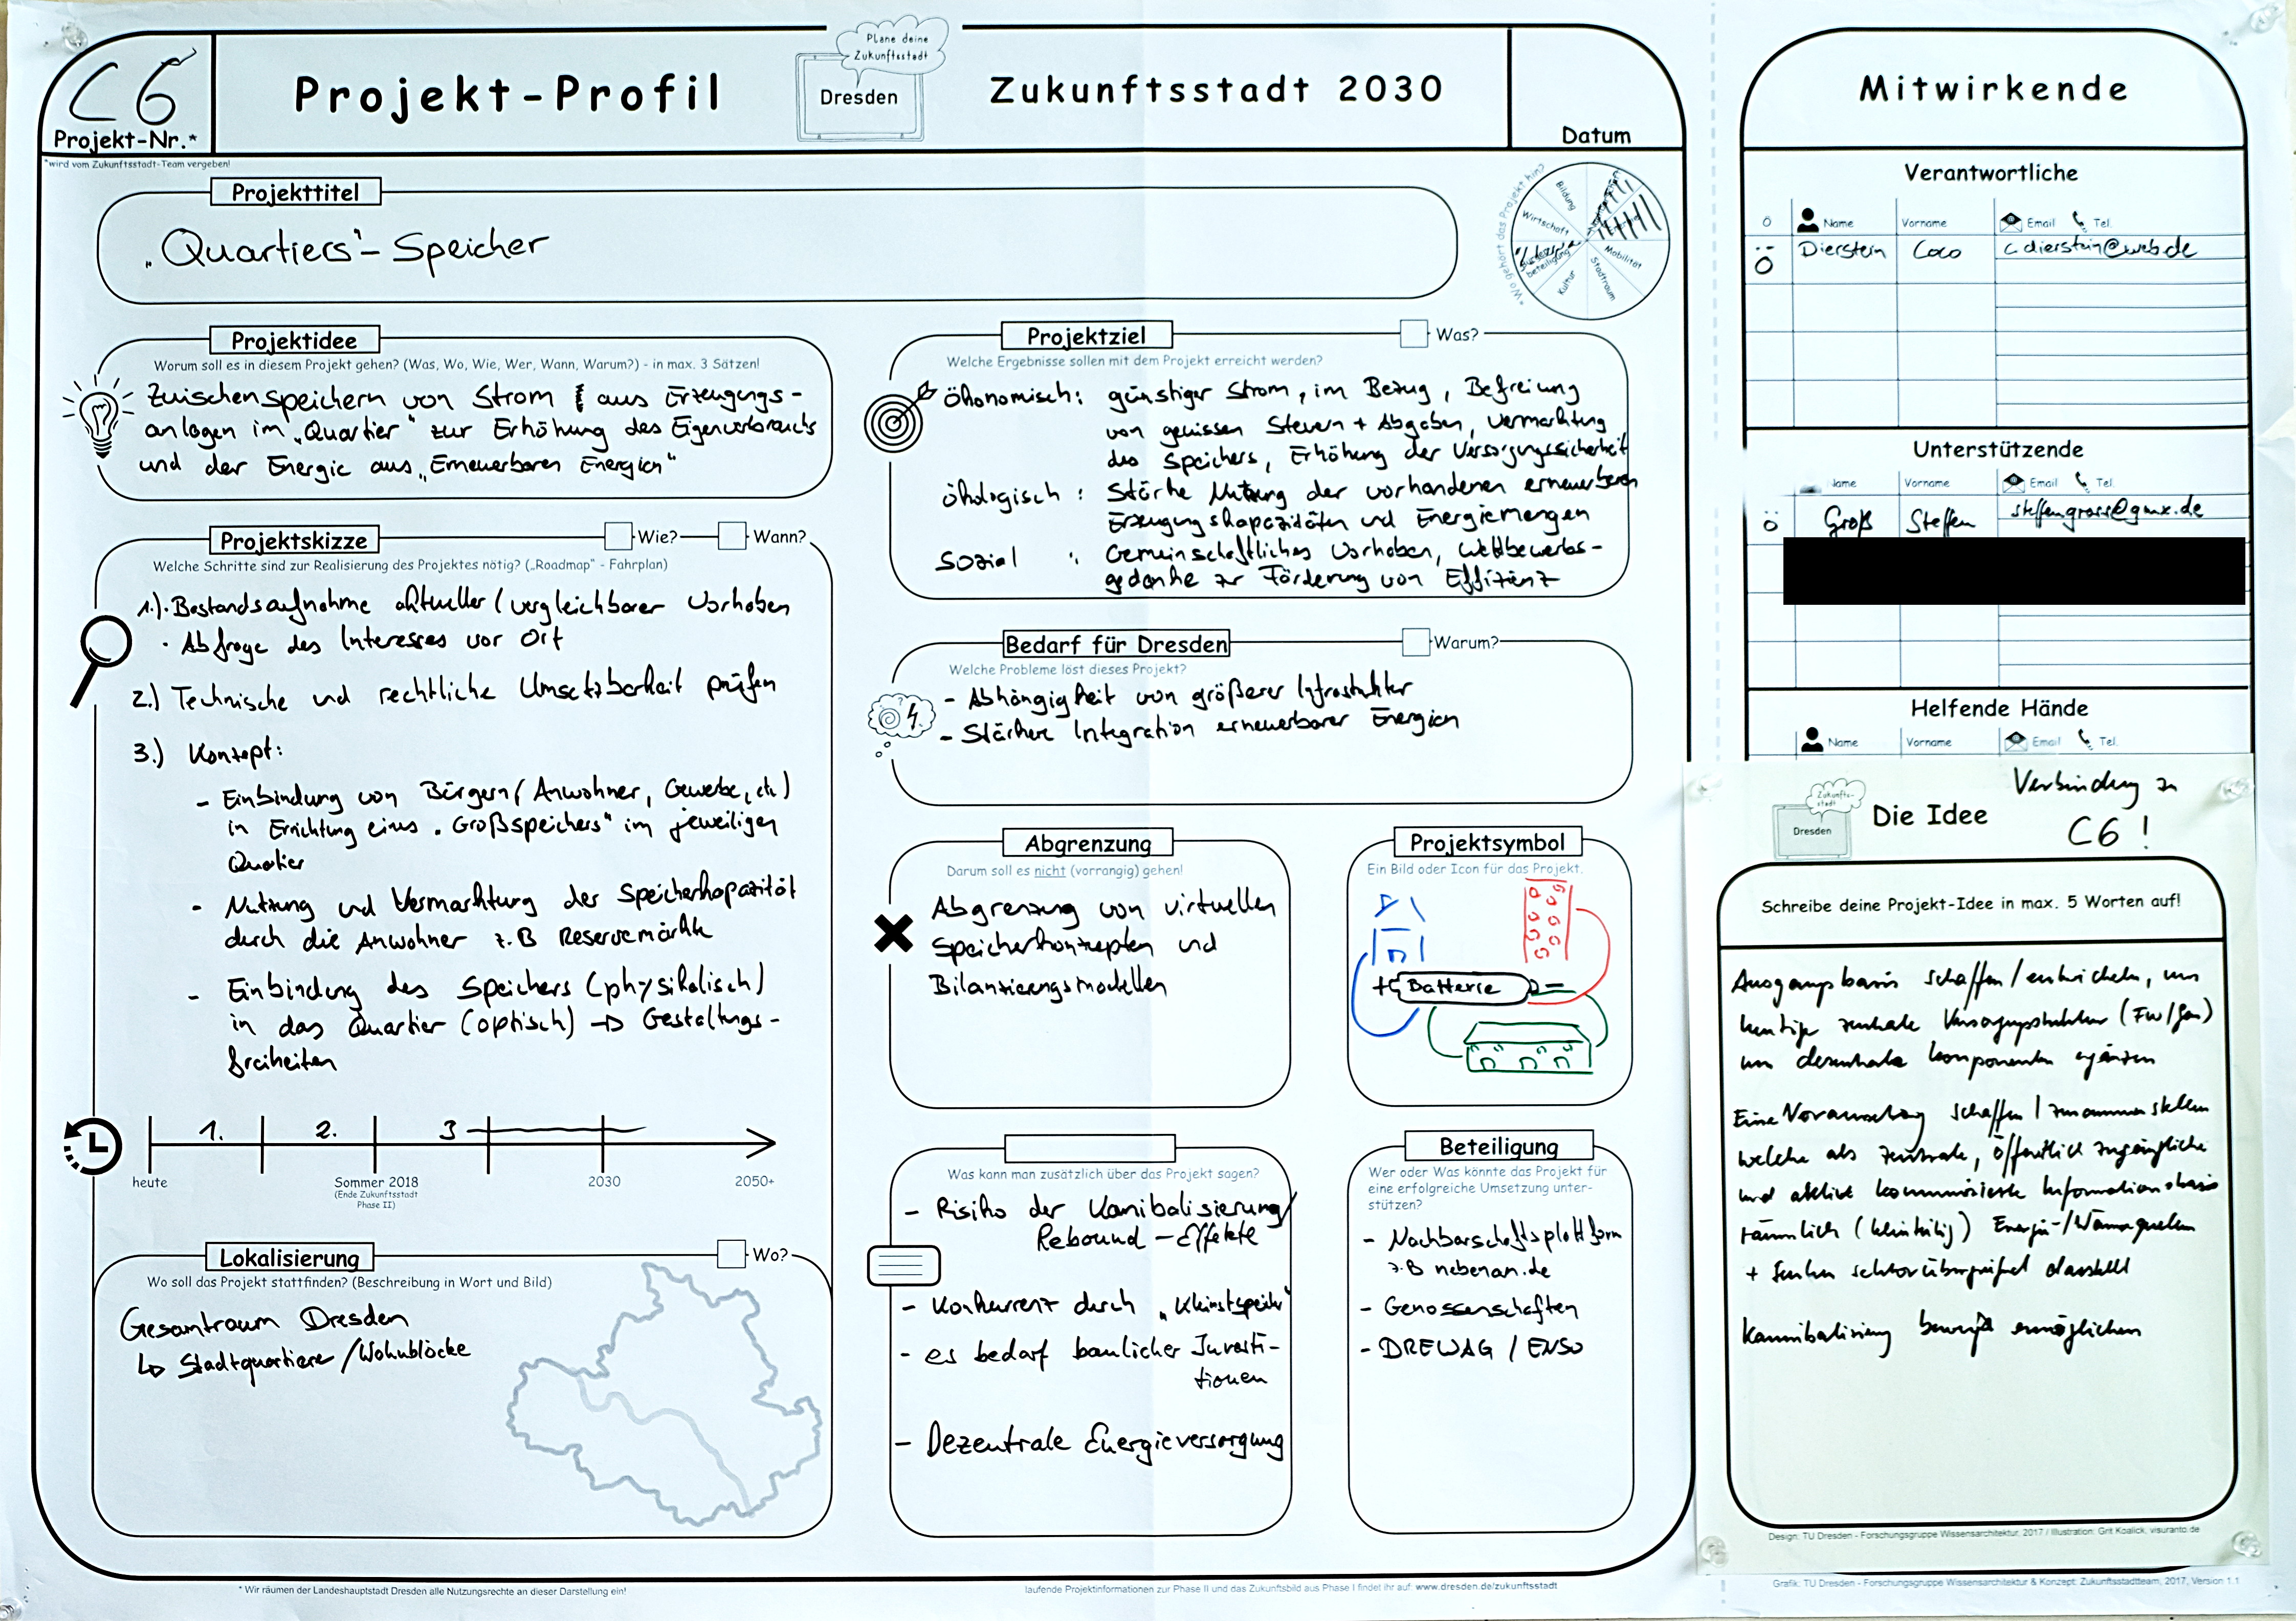 C6
Projekt-Nr.*
*wird vom Zukunftsstadt-Team vergeben!
Projekt-Profil
Plane deine
Zukunftsstadt
Dresden
Zukunftsstadt 2030
Datum
Projekttitel
„Quartiers"-Speicher
*Wo gehört das Projekt hin?
Bildung
Wirtschaft
Mobilität
Stadtraum
Kultur
beteiligung
Projektidee
Worum soll es in diesem Projekt gehen? (Was, Wo, Wie, Wer, Wann, Warum?) - in max. 3 Sätzen!
Zwischenspeichern von Strom aus Erzeugungs-
anlagen im „Quartier" zur Erhöhung des Eigenverbrauchs
und der Energie aus „Erneuerbaren Energien"
Projektskizze
Wie?
Wann?
Welche Schritte sind zur Realisierung des Projektes nötig? („Roadmap" - Fahrplan)
1.) · Bestandsaufnahme aktueller / vergleichbarer Vorhaben
· Abfrage des Interesses vor Ort
2.) Technische und rechtliche Umsetzbarkeit prüfen
3.) Konzept:
- Einbindung von Bürgern (Anwohner, Gewerbe, etc)
in Errichtung eines „Großspeichers" im jeweiligen
Quartier
- Nutzung und Vermarktung der Speicherkapazität
durch die Anwohner z.B Reservemärkte
- Einbindung des Speichers (physikalisch)
in das Quartier (optisch) → Gestaltungs-
freiheiten
1. 2. 3
heute
Sommer 2018
(Ende Zukunftsstadt
Phase II)
2030
2050+
Lokalisierung
Wo?
Wo soll das Projekt stattfinden? (Beschreibung in Wort und Bild)
Gesamtraum Dresden
↳ Stadtquartiere / Wohnblöcke
Projektziel
Was?
Welche Ergebnisse sollen mit dem Projekt erreicht werden?
ökonomisch: günstiger Strom, im Bezug, Befreiung
von gewissen Steuern + Abgaben, Vermarktung
des Speichers, Erhöhung der Versorgungssicherheit
ökologisch: Stärke Nutzung der vorhandenen erneuerbaren
Erzeugungskapazitäten und Energiemengen
sozial: Gemeinschaftliches Vorhaben, Wettbewerbs-
gedanke zur Förderung von Effizienz
Bedarf für Dresden
Warum?
Welche Probleme löst dieses Projekt?
- Abhängigkeit von größerer Infrastruktur
- Stärkere Integration erneuerbarer Energien
Abgrenzung
Darum soll es nicht (vorrangig) gehen!
Abgrenzung von virtuellen
Speicherkonzepten und
Bilanzierungsmodellen
Projektsymbol
Ein Bild oder Icon für das Projekt.
+ Batterie -
Was kann man zusätzlich über das Projekt sagen?
- Risiko der Kanibalisierung/
Rebound-Effekte
- Konkurrenz durch „Kleinstspeicher"
- es bedarf baulicher Investi-
tionen
- Dezentrale Energieversorgung
Beteiligung
Wer oder Was könnte das Projekt für
eine erfolgreiche Umsetzung unter-
stützen?
- Nachbarschaftsplattform
z.B nebenan.de
- Genossenschaften
- DREWAG / ENSO
* Wir räumen der Landeshauptstadt Dresden alle Nutzungsrechte an dieser Darstellung ein!
laufende Projektinformationen zur Phase II und das Zukunftsbild aus Phase I findet ihr auf: www.dresden.de/zukunftsstadt
Mitwirkende
Verantwortliche
Name Vorname Email Tel.
Dierstein Coco c.dierstein@web.de
Unterstützende
Name Vorname Email Tel.
Groß Steffen steffengross@gmx.de
Helfende Hände
Name Vorname Email Tel.
Zukunfts-
stadt
Dresden
Die Idee
Verbindung zu
C6!
Schreibe deine Projekt-Idee in max. 5 Worten auf!
Ausgangsbasis schaffen / entwickeln, um
heutige zentrale Versorgungsstruktur (FW/Gas)
um dezentrale Komponenten ergänzen
Eine schaffen / zusammenstellen
welche als zentrale, öffentlich zugängliche
und aktive kommunizierte Informationsbasis
räumlich (kleinteilig) Energie-/Wärmequellen
+ Senken sektorübergreifend darstellt
Kannibalisierung ermöglichen
Design: TU Dresden - Forschungsgruppe Wissensarchitektur, 2017 / Illustration: Grit Koalick, visuranto.de
Grafik: TU Dresden - Forschungsgruppe Wissensarchitektur & Konzept: Zukunftsstadtteam, 2017, Version 1.1